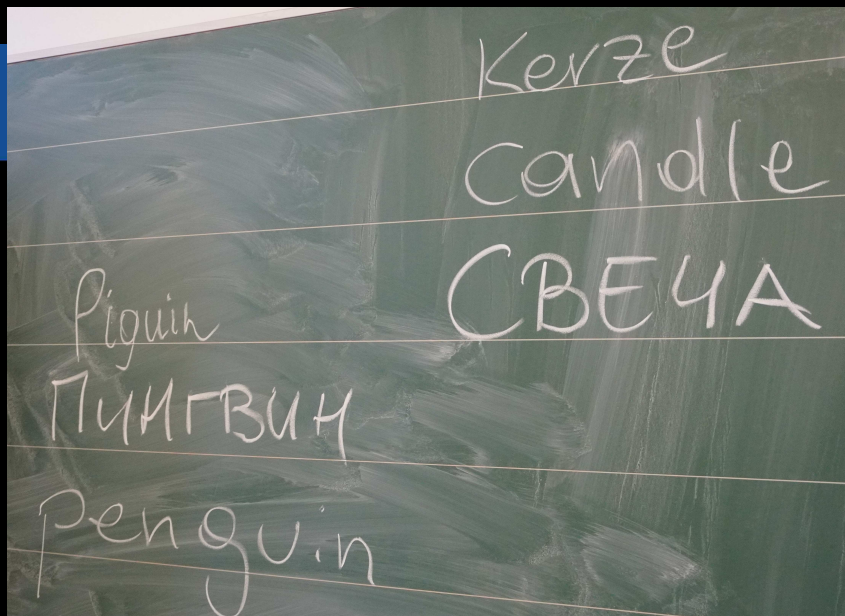 Kerze
Candle
СВЕЧА
Piguin
ПИНГВИН
Penguin